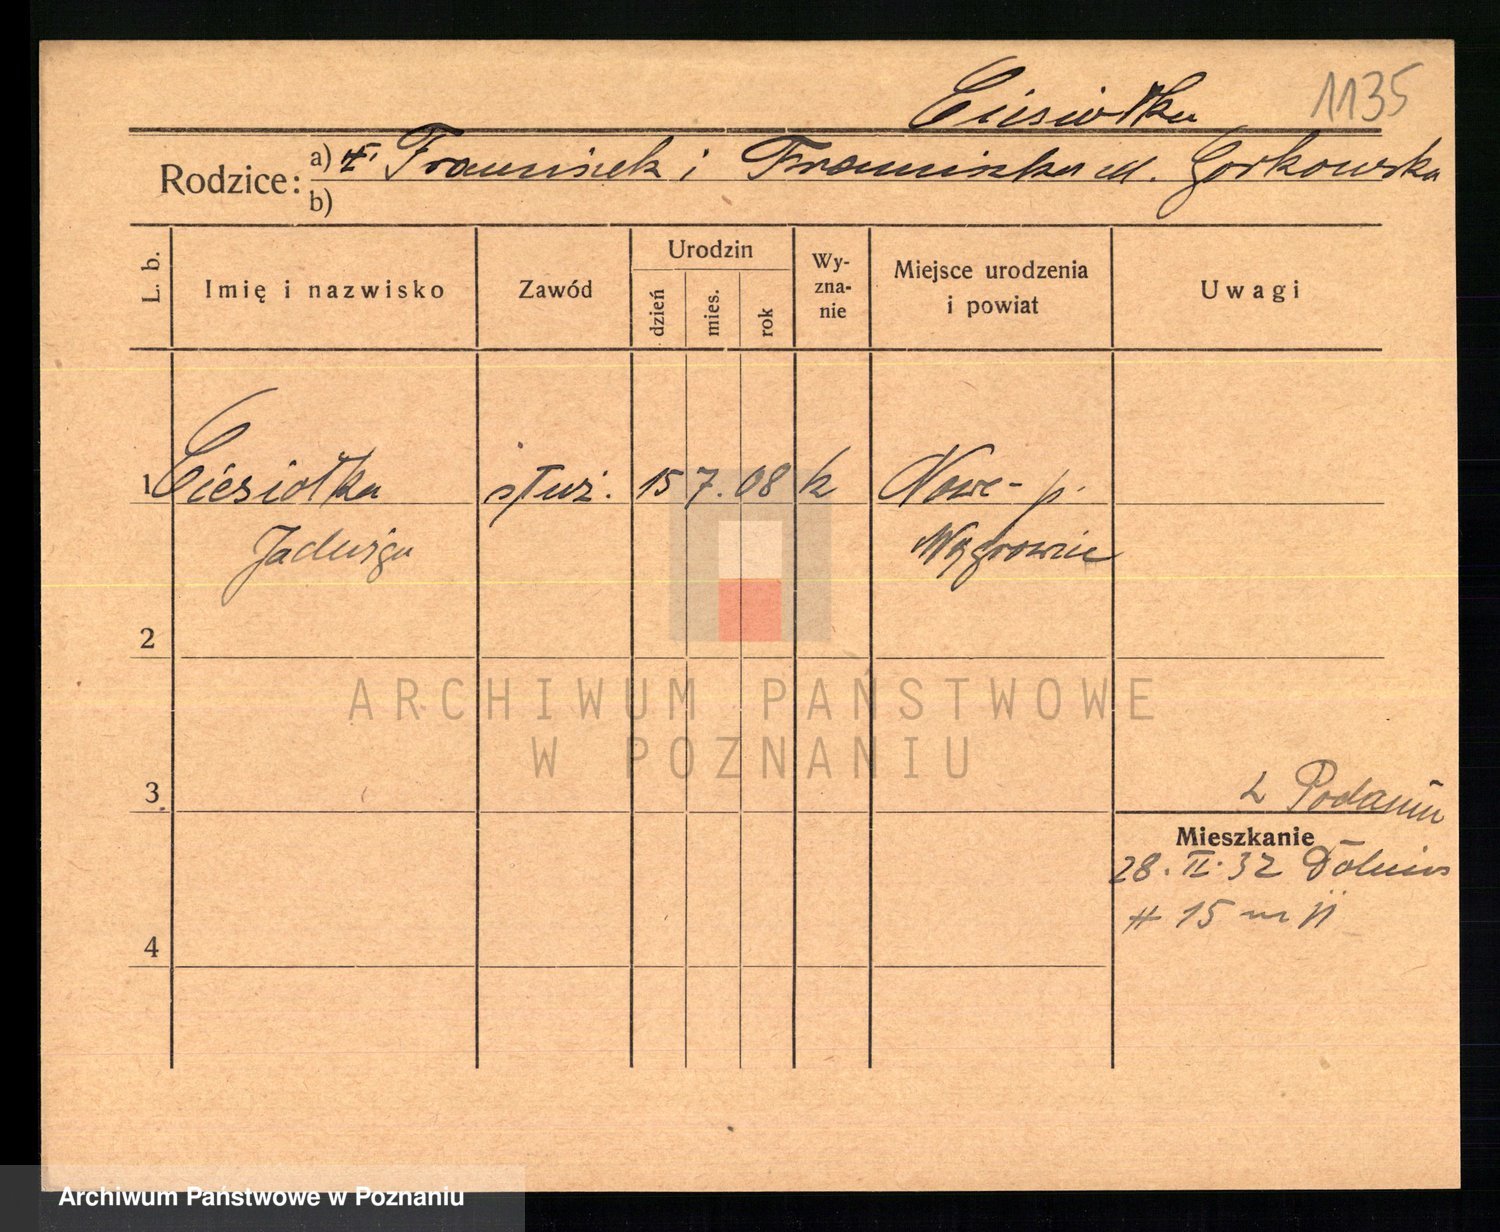 1135
Ciesiołka
Rodzice: a) Franciszek i Franciszka Gorkowska
b)
L. b.
Imię i nazwisko
Zawód
Urodzin
dzień
mies.
rok
Wy-
zna-
nie
Miejsce urodzenia
i powiat
Uwagi
1 Ciesiołka służ. 15 7. 08 k Nowe - p.
Jadwiga Wągrowiec
2
ARCHIWUM PAŃSTWOWE
W POZNANIU
3
Mieszkanie
28. II. 32
15 m
4
Archiwum Państwowe w Poznaniu